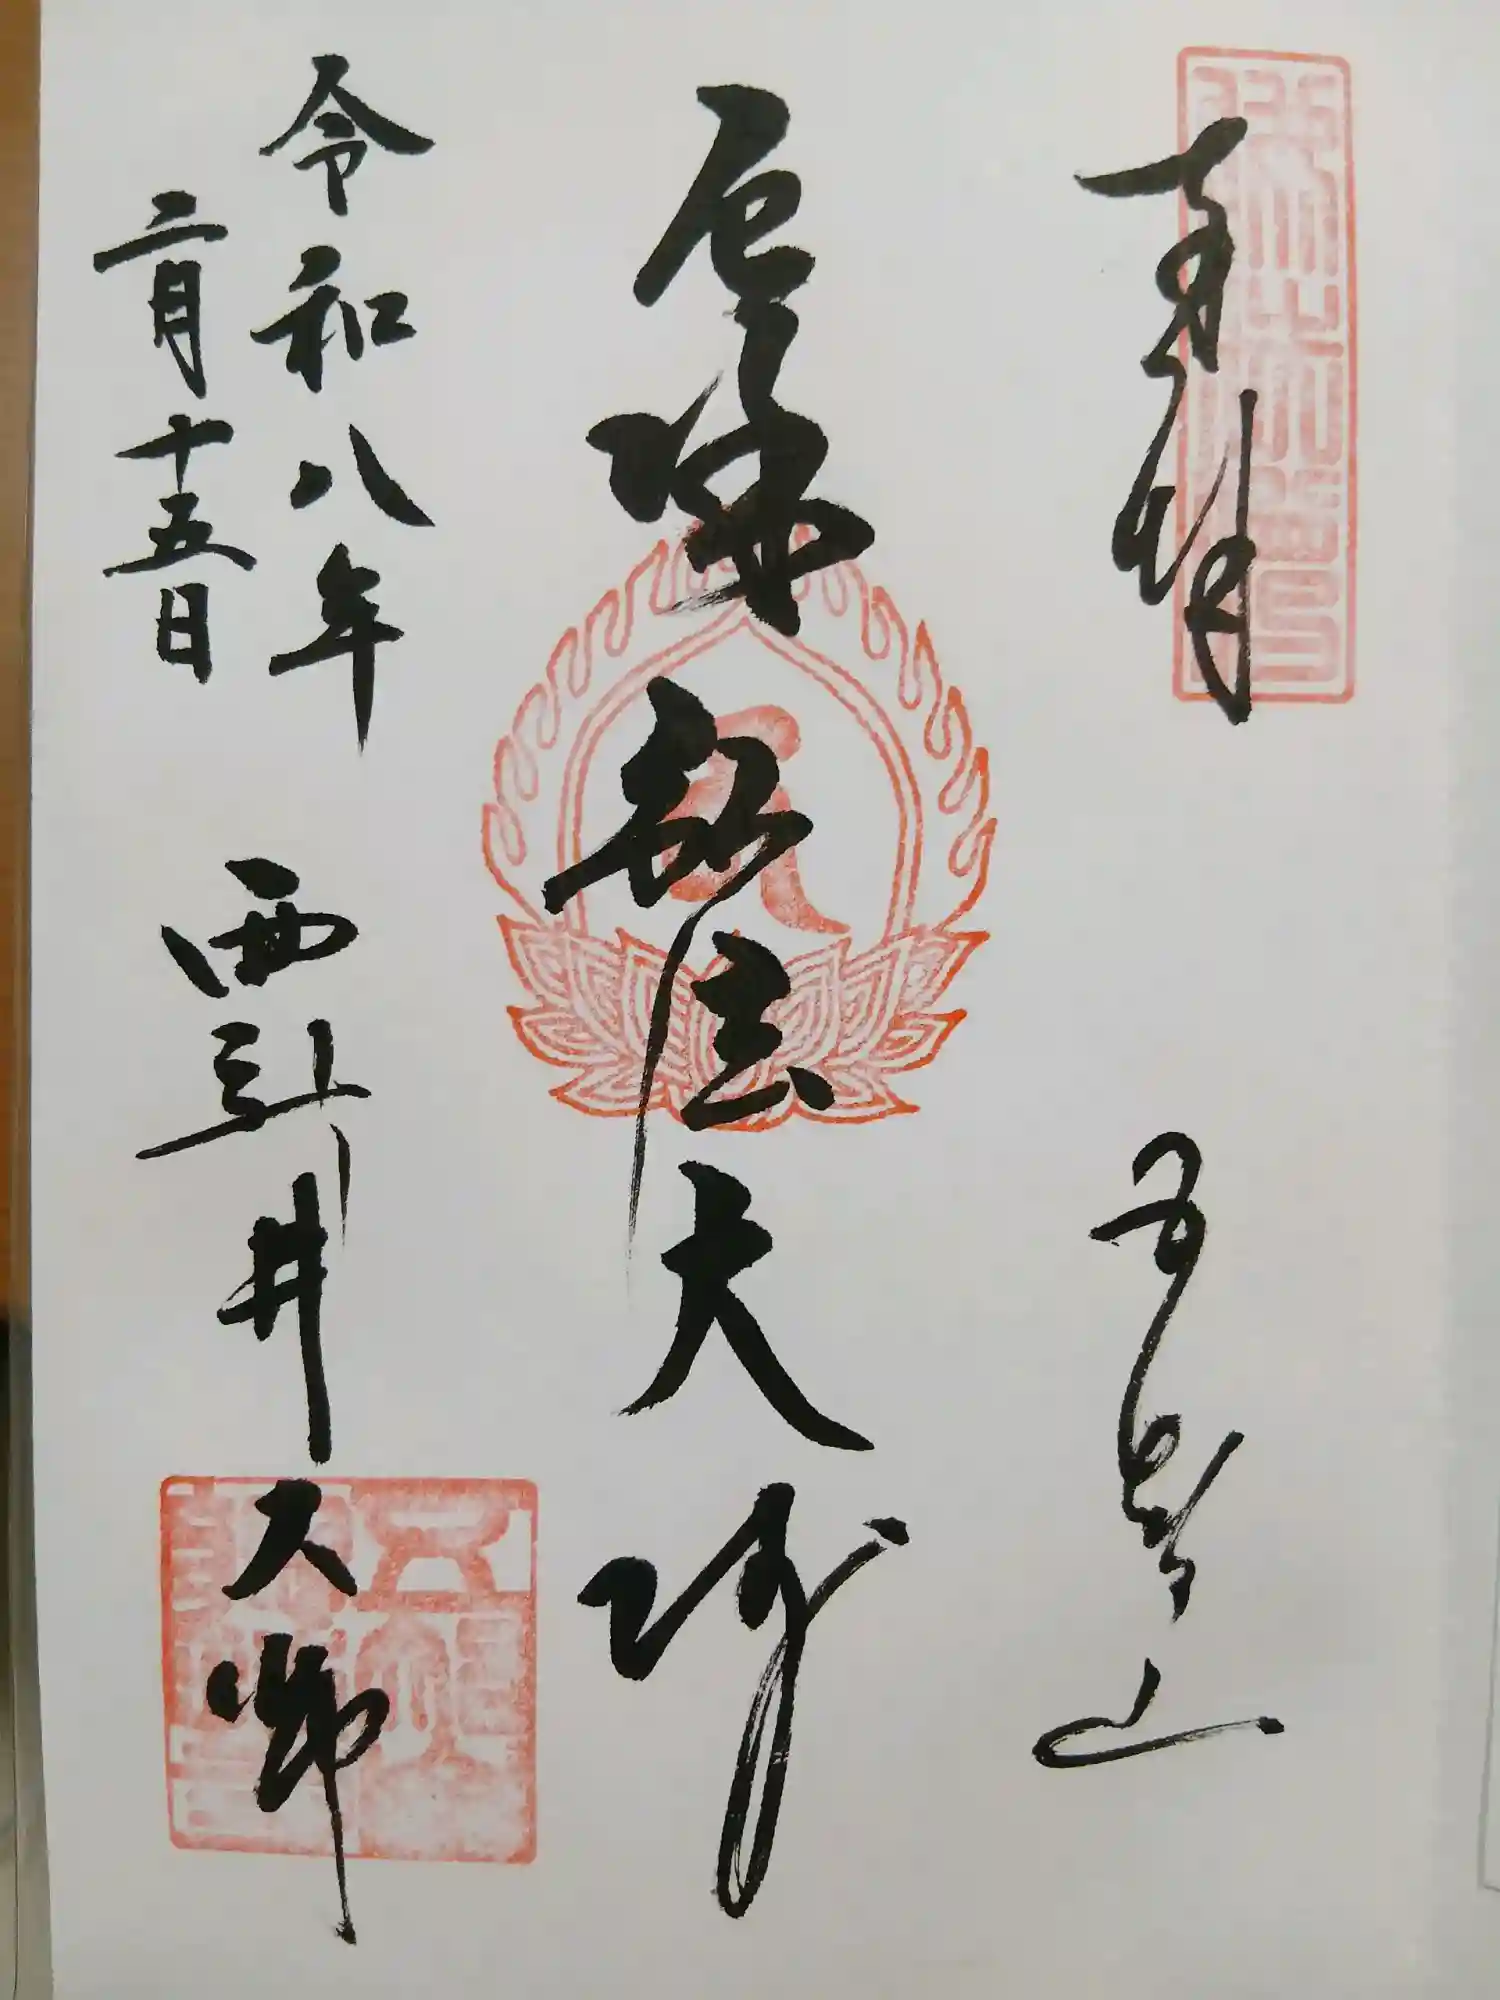 奉拝
五智山
厄除弘法大師
令和八年
二月十五日
西新井大師